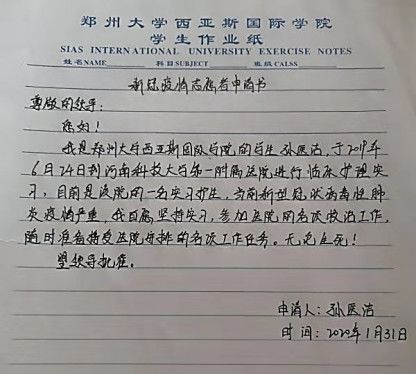 郑州大学西亚斯国际学院
学生作业纸
SIAS INTERNATIONAL UNIVERSITY EXERCISE NOTES
姓名NAME 科目SUBJECT 班级CALSS
新冠疫情志愿者申请书
尊敬的领导:
您好!
我是郑州大学西亚斯国际学院的学生孙医洁,于2019年
6月24日到河南科技大学第一附属医院进行临床护理实
习,目前是该院的一名实习护生,当前新型冠状病毒性肺
炎疫情严重,我自愿坚持实习,参加医院的各项救治工作,
随时准备接受医院安排的各项工作任务。无论生死!
望领导批准。
申请人:孙医洁
时间:2020年1月31日